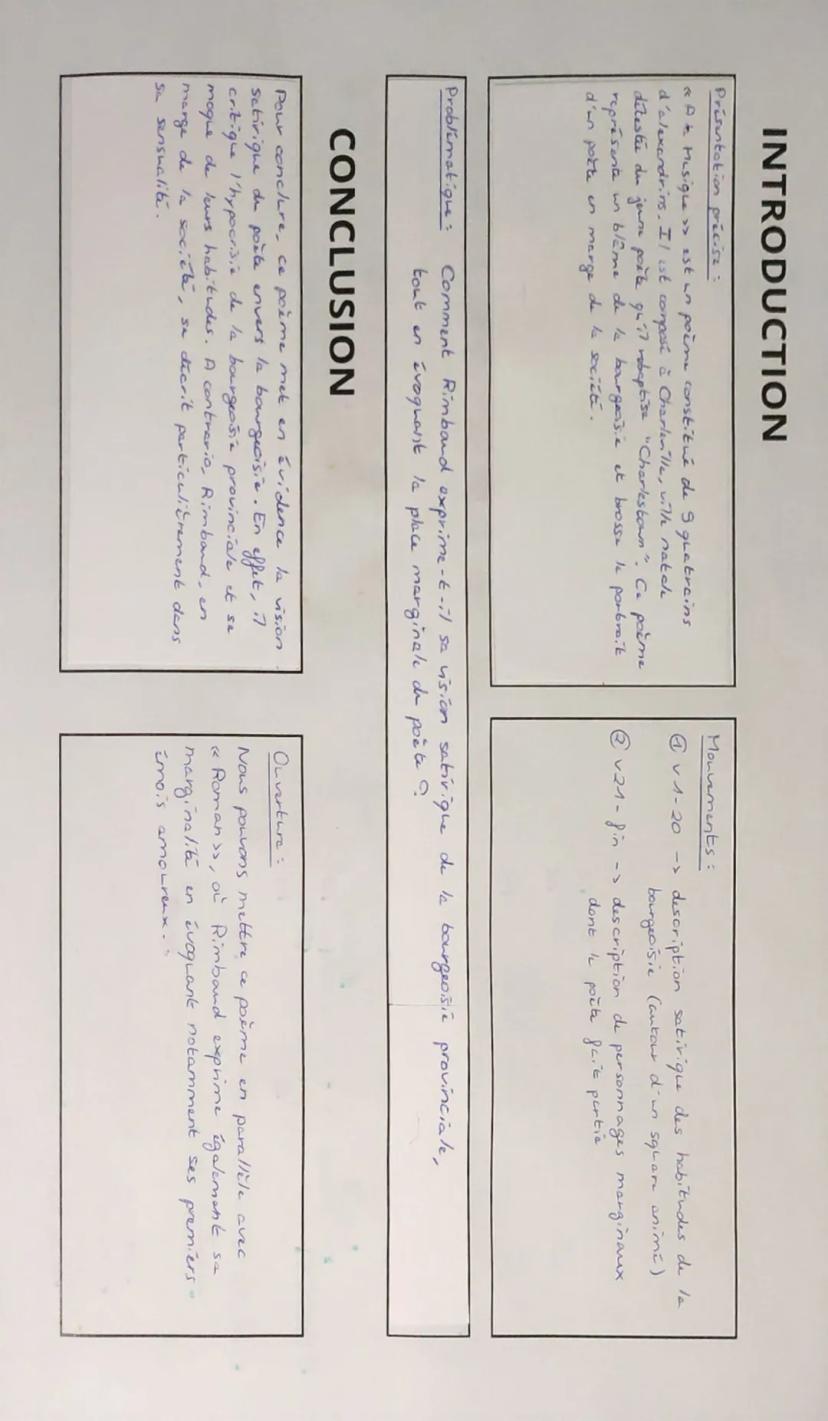 INTRODUCTION
Présentation précise :
« A la Musique » est un poème constitué de 9 quatrains
d'alexandrins. Il est composé à Charleville, ville natale
détestée du jeune poète qu'il rebaptise "Charlestown". Ce poème
représente un blâme de la bourgeoisie et brosse le portrait
d'un poète en marge de la société.
Mouvements :
① v1-20 -> description satirique des habitudes de la
bourgeoisie (autour d'un square animé)
② v21-fin -> description de personnages marginaux
dont le poète fait partie
Problématique : Comment Rimbaud exprime-t-il sa vision satirique de la bourgeoisie provinciale,
tout en évoquant la place marginale du poète ?
CONCLUSION
Pour conclure, ce poème met en évidence la vision
satirique du poète envers la bourgeoisie. En effet, il
critique l'hypocrisie de la bourgeoisie provinciale et se
moque de leurs habitudes. A contrario, Rimbaud, en
marge de la société, se décrit particulièrement dans
sa sensualité.
Ouverture :
Nous pouvons mettre ce poème en parallèle avec
« Roman », où Rimbaud exprime également sa
marginalité en évoquant notamment ses premiers
émois amoureux.